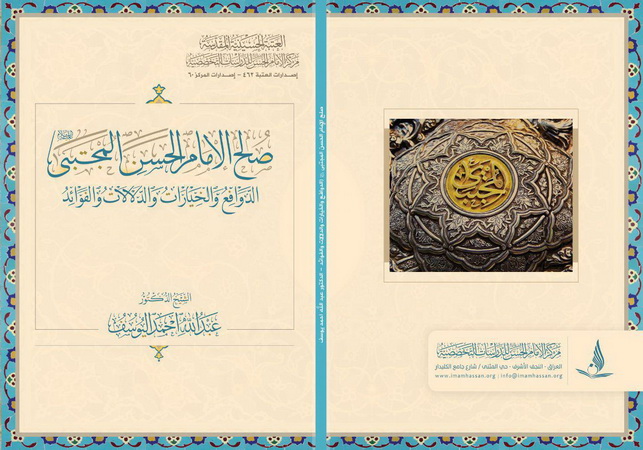 العتبة الحسينية المقدسة
مركز الإمام الحسن للدراسات التخصصية
إصدارات العتبة ٤٦٢ - إصدارات المركز ٦٠
صلح الإمام الحسن المجتبى
الدوافع والخيارات والدلالات والفوائد
الشيخ الدكتور
عبدالله أحمد اليوسف
صلح الإمام الحسن المجتبى الدوافع والخيارات والدلالات والفوائد - الدكتور عبد الله أحمد يوسف
مركز الإمام الحسن للدراسات التخصصية
العراق - النجف الأشرف - حي المثنى / شارع جامع الكليدار
www.imamhassan.org : info@imamhassan.org